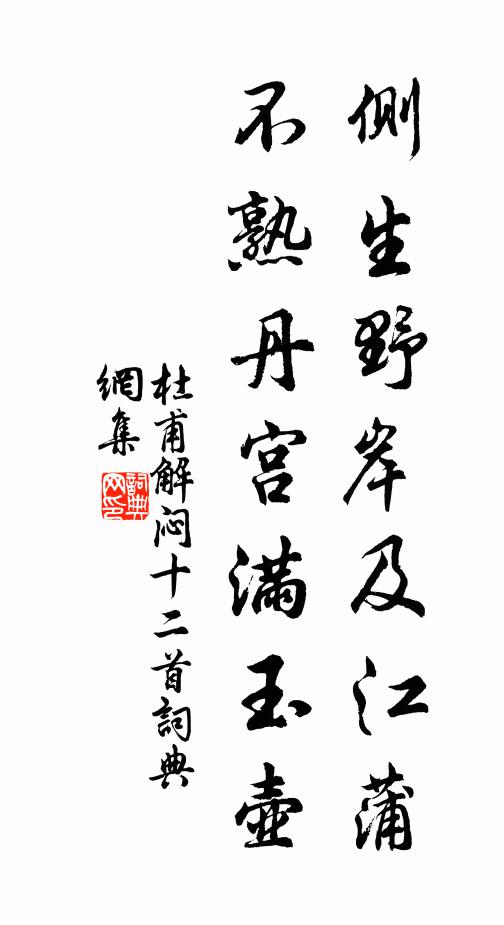 側生野岸及江蒲
不熟丹宮滿玉壺
杜甫解闷十二首詞典
網集
詞典
网印